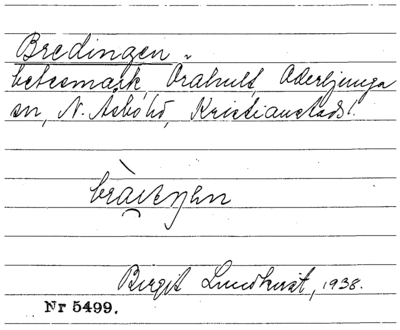 Bredingen.
betesmark, Orahult, Oderljunga
sn, N. Åsbo hd, Kristianstads l.
Birgit Lundkvist, 1938.
Nr 5499.